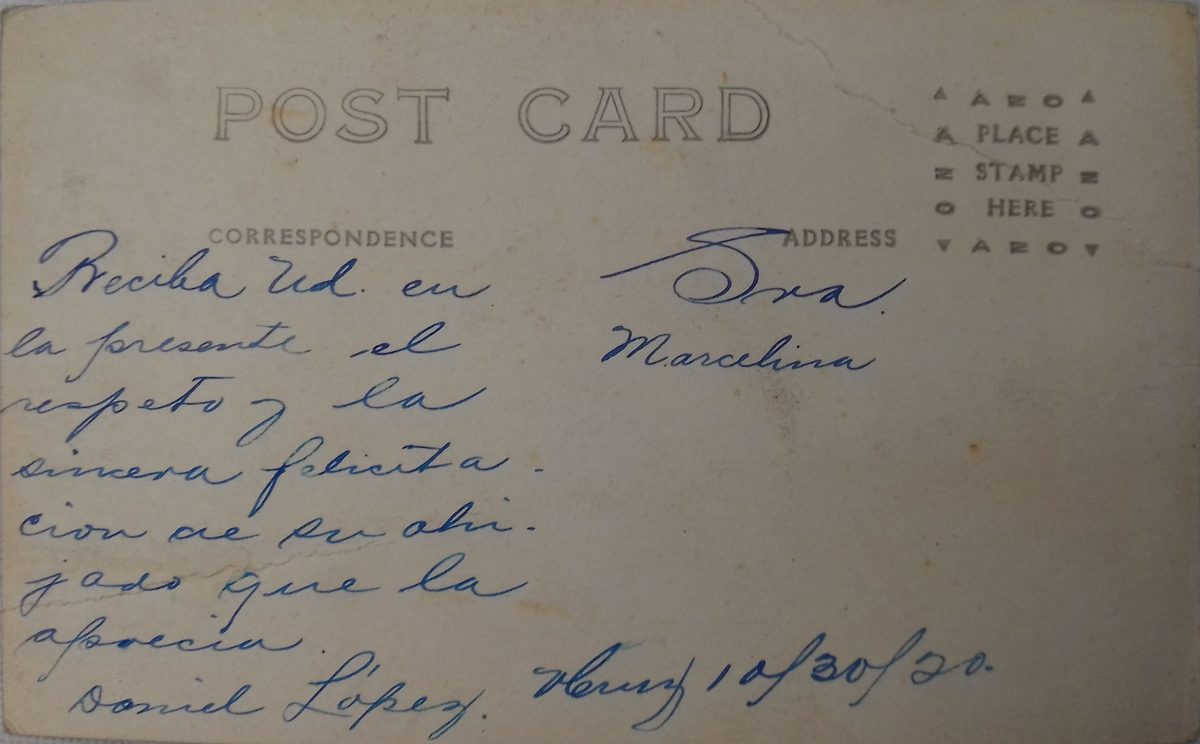 POST CARD
AZO
PLACE
STAMP
HERE
AZO
AZO
AZO
CORRESPONDENCE
ADDRESS
Reciba Ud. en
la presente el
respeto y la
sincera felicita-
cion de su ahi-
jado que la
aprecia.
Daniel López.
Sra.
Marcelina
VCruz 10/30/30.